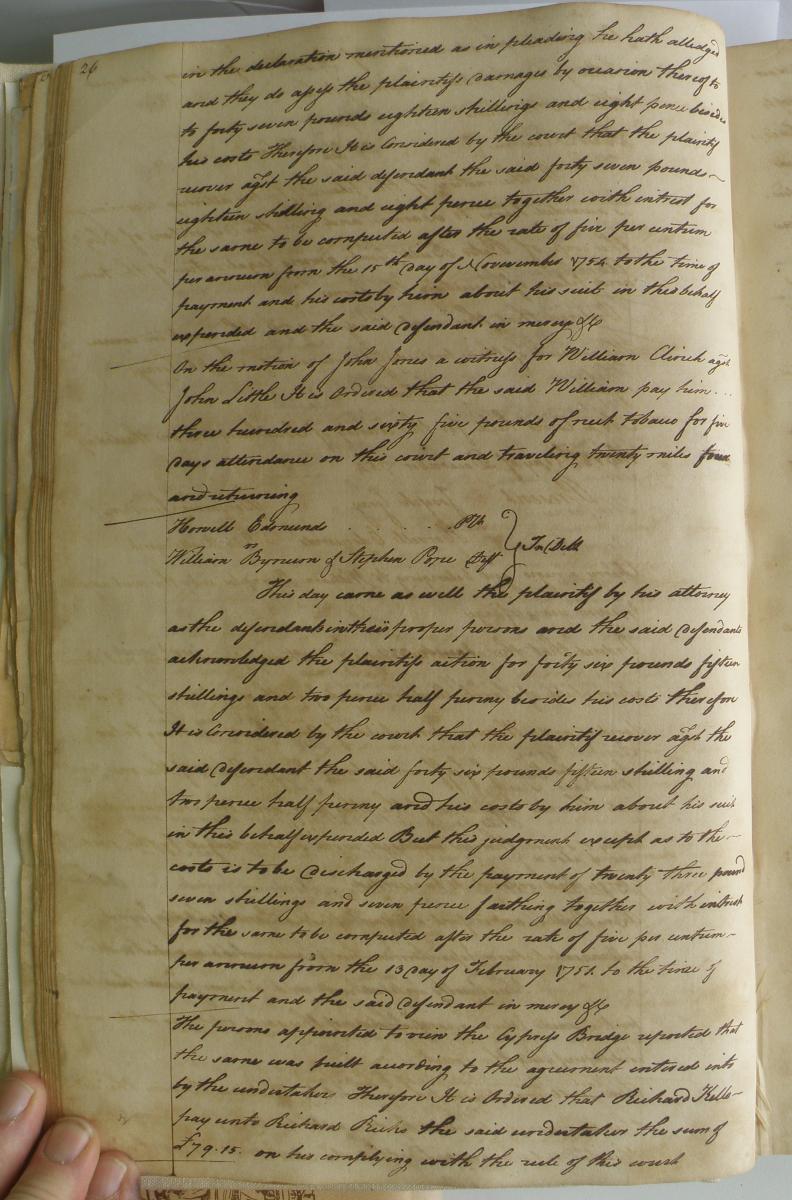 26
in the declaration mentioned as in pleading he hath alledged
and they do assess the plaintifs damages by occasion thereof to
to forty seven pounds eighteen shillings and eight pence besides
his costs Therefore It is Considered by the court that the plaintif
recover agst the said defendant the said forty seven pounds
eighteen shilling and eight pence together with intrest for
the same to be computed after the rate of five per centum
per annum from the 15th day of November 1754 to the time of
payment and his costs by him about his suit in this behalf
expended and the said defendant in mercy &c
On the motion of John Jones a witness for William Clinch agst
John Little It is Ordered that the said William pay him
three hundred and sixty five pounds of nett tobacco for five
days attendance on this court and traveling twenty miles
and returning
Howell Edmunds Plt
William Bynum & Stephen Pope Deft } In Debt
This day came as well the plaintif by his attorney
as the defendants in their proper persons and the said defendants
acknowledged the plaintifs action for forty six pounds fifteen
shillings and two pence half penny besides his costs therefore
It is Considered by the court that the plaintif recover agst the
said defendant the said forty six pounds fifteen shilling and
two pence half penny and his costs by him about his suit
in this behalf expended But this judgment except as to the
costs is to be discharged by the payment of twenty three pound
seven shillings and seven pence farthing together with intrest
for the same to be computed after the rate of five per centum
per annum from the 13 day of February 1751. to the time of
payment and the said defendant in mercy &c
The persons appointed to view the Cypress Bridge reported that
the same was built according to the agreement entered into
by the undertaker Therefore It is Ordered that Richard Kello
pay unto Richard Ricks the said undertaker the sum of
£79.15. on his complying with the rule of this court